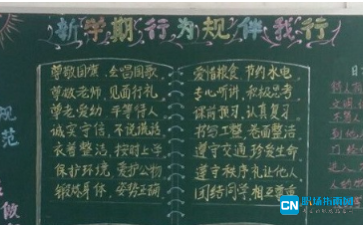 新学期行为规伴我行
尊敬国旗,会唱国歌
尊敬老师,见面行礼
尊老爱幼,平等待人
诚实守信,不说谎话
衣着整洁,按时上学
保护环境,爱护公物
锻炼身体,姿势正确
爱惜粮食,节约水电
专心听讲,积极思考
课前预习,认真复习
书写工整,卷面整洁
遵守交通,珍爱生命
遵守秩序,礼让他人
团结同学,相互尊重
规
范
做
日
CN